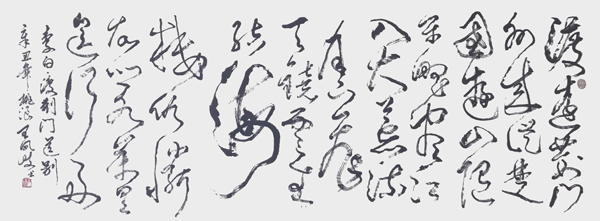 渡遠荆门
外来從楚
國遊山隨
平野尽江
入大荒流
月下飛
天鏡雲生
结海
楼仍憐
故鄉水万里
送行舟
李白渡荆门送别
辛丑年